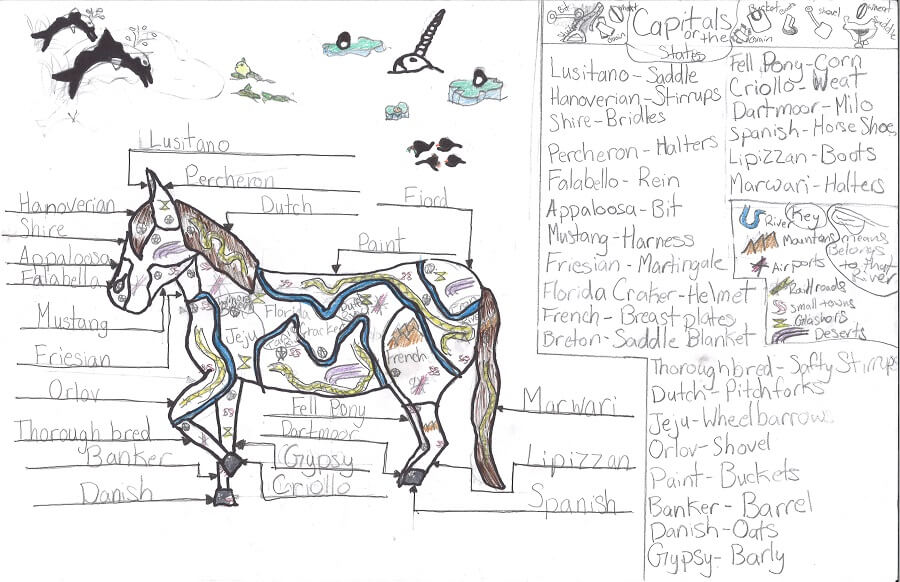 Lusitano
Percheron
Hanoverian
Shire
Dutch
Fiord
Appaloosa
Falabella
Paint
Mustang
Friesian
Orlov
Thorough bred
Banker
Danish
Jeju
French
Fell Pony
Dartmoor
Gypsy
Criollo
Marwari
Lipizzan
Spanish
Capitals
of the
States
Bit
Bucket
shovel
Saddle
Lusitano-Saddle
Hanoverian-Stirrups
Shire-Bridles
Percheron-Halters
Falabello-Rein
Appaloosa-Bit
Mustang-Harness
Friesian-Martingale
Florida Craker-Helmet
French-Breastplates
Breton-Saddle Blanket
Fell Pony-Corn
Criollo-Weat
Dartmoor-Milo
Spanish-Horse Shoes
Lipizzan-Boots
Marwari-Halters
Key
River
Mountans
Air ports
Railroads
small towns
Glashors
Deserts
means
Belongs
to that
River
Thoroughbred-Safty Stirrups
Dutch-Pitchforks
Jeju-Wheelbarrows
Orlov-Shovel
Paint-Buckets
Banker-Barrel
Danish-Oats
Gypsy-Barly